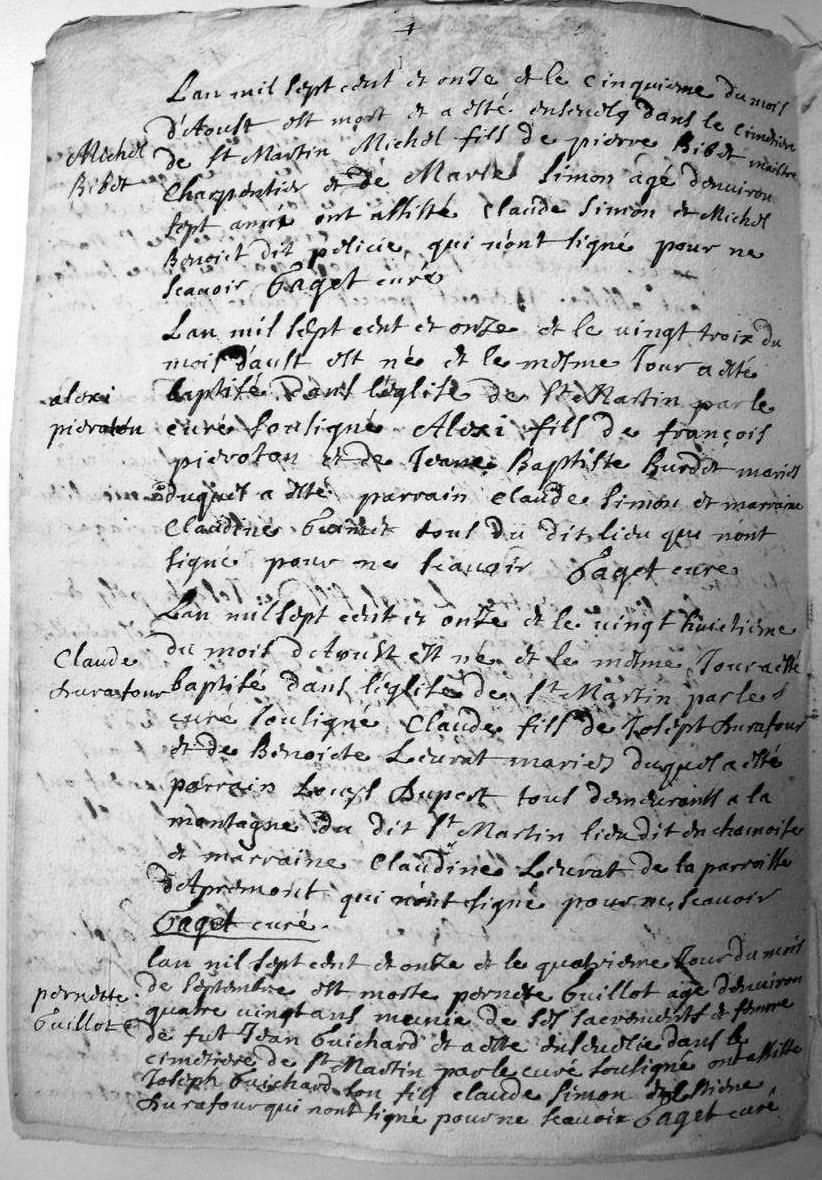 4
Lan mil sept cent et onze et le cinquieme du mois
d'Aoust est mort et a esté ensevely dans le cimetiere
Michel
Bibet
de St Martin Michel fils de pierre Bibet maistre
Charpentier et de Marie Simon agé denviron
sept années ont assisté Claude Simon et Michel
Benoict dit pelicie qui n'ont signé pour ne
scavoir Gaget curé
Lan mil sept cent et onze et le vingt troix du
mois d'aust est né et le mesme Jour a esté
alexi
pieroton
baptisé dans léglise de St Martin par le
curé soussigné Alexi fils de françois
pieroton et de Jeane Baptiste Burdet mariés
duquel a esté parrain Claude Simon et marraine
Claudine tous du dit lieu qui nont
signé pour ne scavoir Gaget curé
Lan mil sept cent et onze et le vingt huictieme
du mois d'Aoust est né et le mesme Jour a esté
Claude
Durafour
baptisé dans léglise de St Martin par le
curé souligné Claude fils de Joseph Durafour
et de Benoicte Leurat mariez duquel a esté
parrain Dupert tous demeurants a la
montagne du dit St Martin lieu dit en
et marraine Claudine Leurat de la parroisse
d'Apremont qui n'ont signé pour ne scavoir
Gaget curé.
lan mil sept cent et onze et le quatrieme Jour du mois
pernette
Guillot
de septembre est morte pernete Guillot agé denviron
quatre vingt ans munie de ses sacrements et femme
de fut Jean Guichard et a esté ensevelie dans le
cimetiere de St Martin par le curé souligné ont assisté
Joseph Guichard son fils claude Simon
Durafour qui nont signé pour ne scavoir Gaget curé